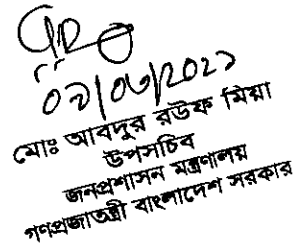 মোঃ আবদুর রউফ মিয়া
উপসচিব
জনপ্রশাসন মন্ত্রণালয়
গণপ্রজাতন্ত্রী বাংলাদেশ সরকার